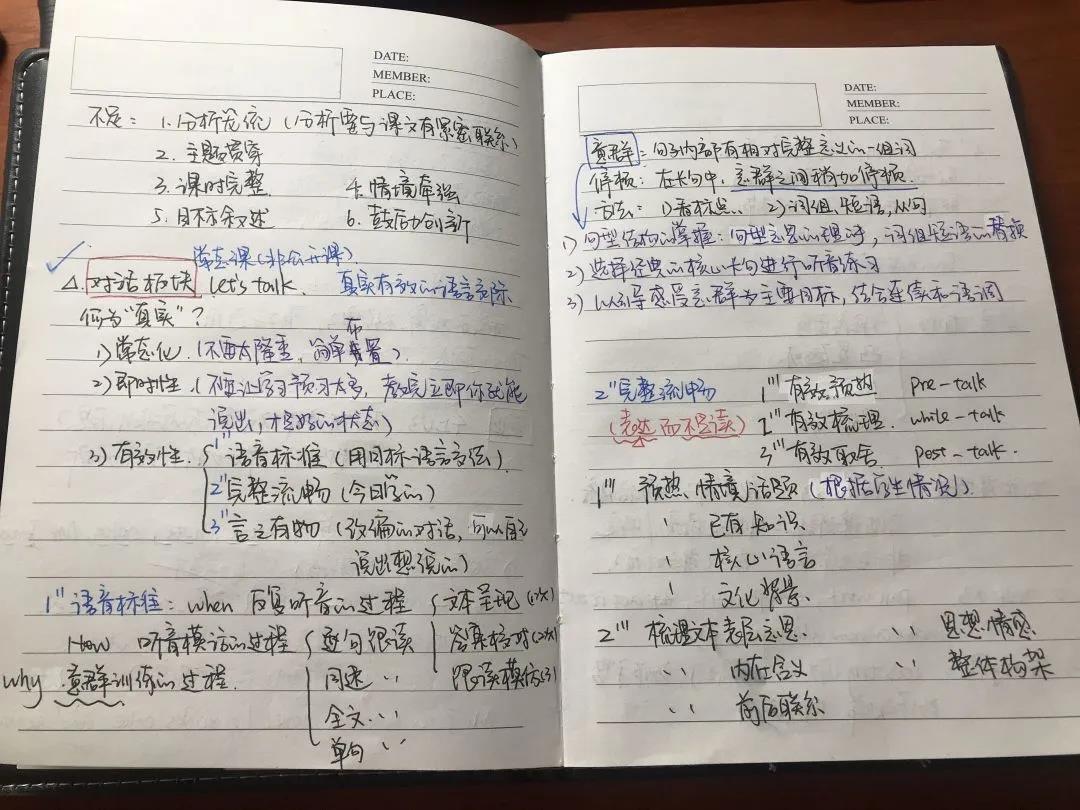 DATE:
MEMBER:
PLACE:
不足: 1.分析笼统(分析要与课文有紧密联系)
2.主题贯穿
3.课时完整 4.情境牵强
5.目标叙述 6.鼓励创新
常态课(非公开课)
△.对话板块 Let's talk. 真实有效的语言交际
何为"真实"?
1)常态化.(不要太隆重,简单布置).
2)即时性.(不要让学习预习太多,教完立即你就能
说出,才是好的状态)
3)有效性. 1"语音标准(用目标语言交流).
2"完整流畅(今日学的)
3"言之有物(改编的对话,可以自己
说出想说的)
1"语音标准: when 反复听音的过程 文本呈现(1-2x)
How 听音模访的过程 逐句跟读 答案核对(2x)
why 意群训练的过程. 同速 〃 跟读模仿(3)
全文 〃
单句 〃
DATE:
MEMBER:
PLACE:
意群:句子内部有相对完整意义的一组词
停顿:在长句中,意群之间稍加停顿.
方法: 1)看标点. 2)词组、短语,从句
1)句型结构的掌握:句型意思的理解,词组短语的替换
2)选择经典的核心长句进行听音练习
3)以引导感受意群为主要目标,结合连读和语调
2"完整流畅 1'''有效预热 pre-talk
(表达而不是读) 2'''有效梳理. while-talk
3'''有效取舍 post-talk.
1''' 预热 情境话题(根据学生情况).
' 已有知识.
' 核心语言
' 文化背景.
2''' 梳理文本表层意思. 〃 思想情感
〃 内在含义 〃 整体构架
〃 前后联系